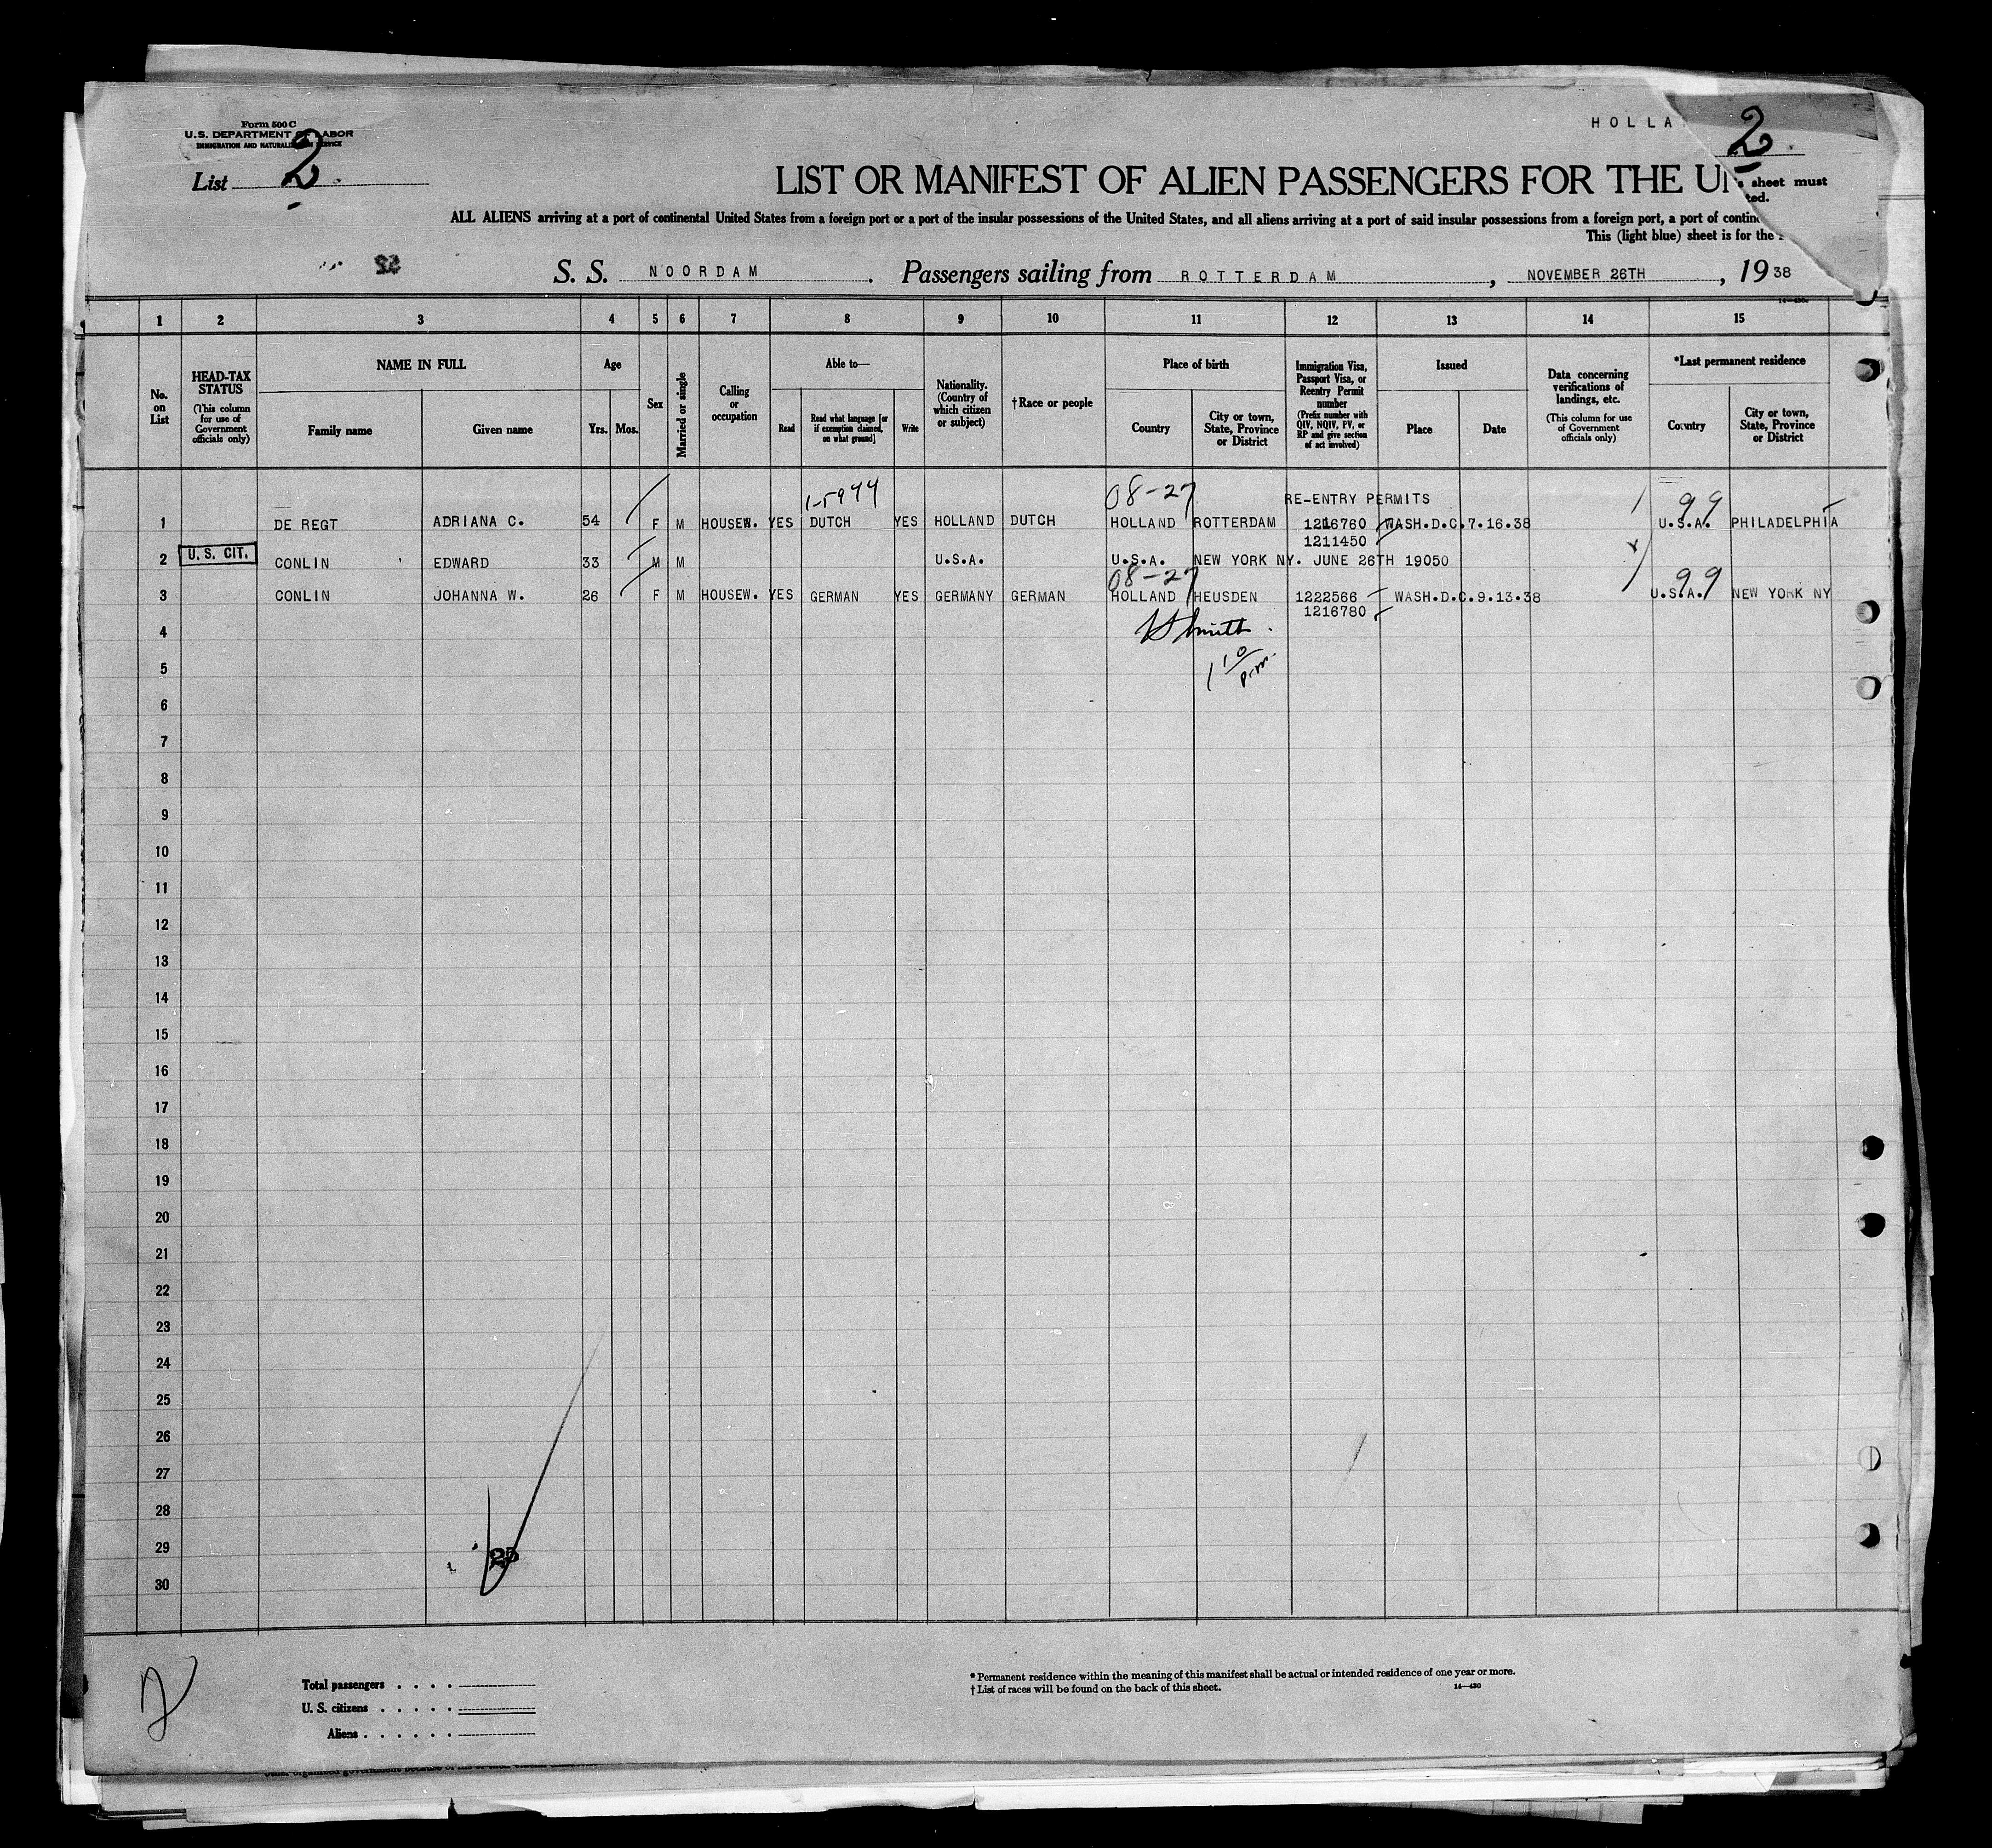 Form 500 C
U.S. DEPARTMENT OF LABOR
IMMIGRATION AND NATURALIZATION SERVICE
HOLLA
2
List 2
LIST OR MANIFEST OF ALIEN PASSENGERS FOR THE UN
sheet must
ted.
ALL ALIENS arriving at a port of continental United States from a foreign port or a port of the insular possessions of the United States, and all aliens arriving at a port of said insular possessions from a foreign port, a port of contin
This (light blue) sheet is for the
S. S. NOORDAM. Passengers sailing from ROTTERDAM, NOVEMBER 26TH, 1938
14-430
1 2 3 4 5 6 7 8 9 10 11 12 13 14 15
No. on List
HEAD-TAX STATUS
(This column for use of Government officials only)
NAME IN FULL
Family name
Given name
Age
Yrs. Mos.
Sex
Married or single
Calling or occupation
Able to—
Read
Read what language [or if exemption claimed, on what ground]
Write
Nationality. (Country of which citizen or subject)
†Race or people
Place of birth
Country
City or town, State, Province or District
Immigration Visa, Passport Visa, or Reentry Permit number
(Prefix number with QIV, NQIV, PV, or RP and give section of act involved)
Issued
Place
Date
Data concerning verifications of landings, etc.
(This column for use of Government officials only)
*Last permanent residence
Country
City or town, State, Province or District
1-5944 08-27 RE-ENTRY PERMITS 99
1 DE REGT ADRIANA C. 54 F M HOUSEW. YES DUTCH YES HOLLAND DUTCH HOLLAND ROTTERDAM 1216760 WASH.D.C. 7.16.38 U.S.A. PHILADELPHIA
1211450
2 U. S. CIT. CONLIN EDWARD 33 M M U.S.A. U.S.A. NEW YORK NY. JUNE 26TH 19050
08-27 99
3 CONLIN JOHANNA W. 26 F M HOUSEW. YES GERMAN YES GERMANY GERMAN HOLLAND HEUSDEN 1222566 WASH.D.C. 9.13.38 U.S.A. NEW YORK NY
1216780
4 Smith
5 1 10/p.m.
6
7
8
9
10
11
12
13
14
15
16
17
18
19
20
21
22
23
24
25
26
27
28
29
25
30
2
Total passengers . . . .
U. S. citizens . . . . .
Aliens . . . . . .
* Permanent residence within the meaning of this manifest shall be actual or intended residence of one year or more.
† List of races will be found on the back of this sheet.
14—430